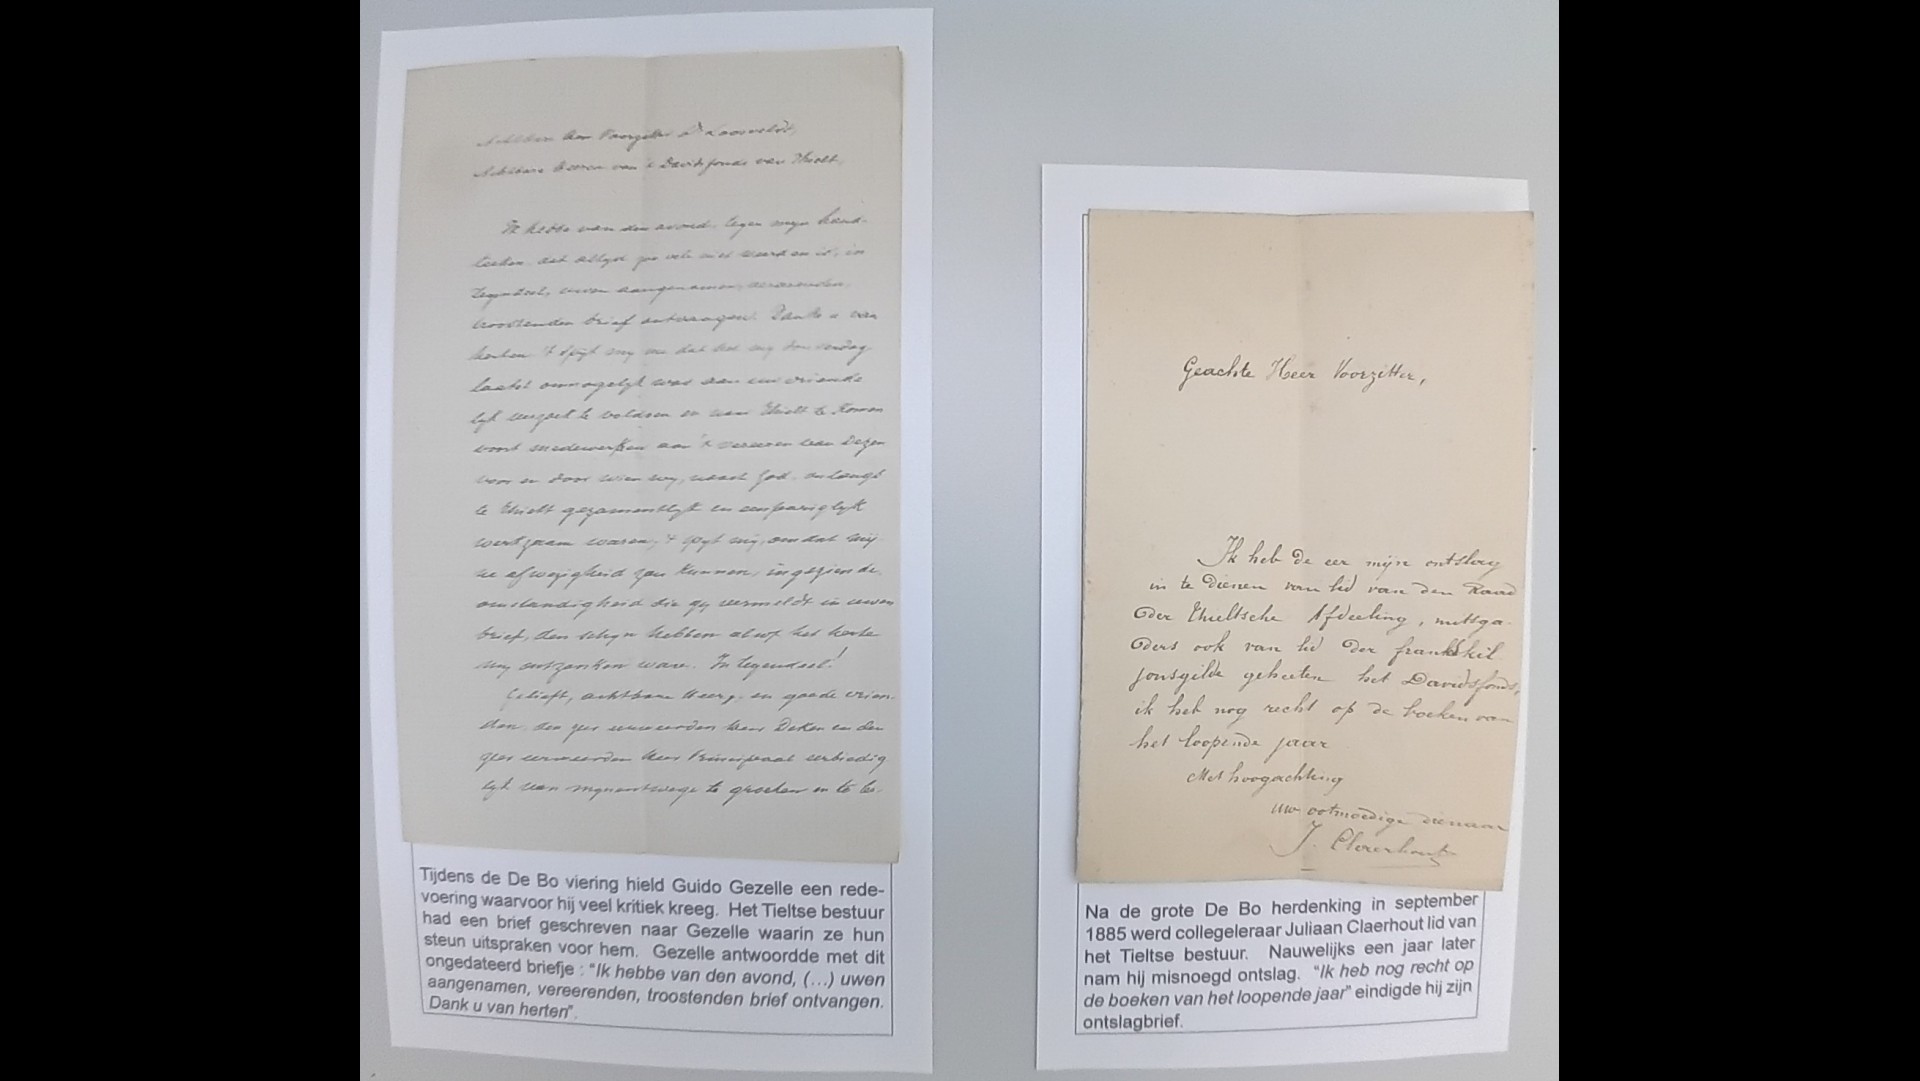 Achtbare Heer Voorzitter Dr Loosveldt,
Achtbare Heeren van 't Davidsfonds van Thielt,
Ik hebbe van den avond, tegen mijn hand-
teeken, dat altijd zoo vele niet weerd en is, in
tegendeel, uwen aangenamen, vereerenden,
troostenden brief ontvangen. Dank u van
herten. 't Spijt mij dat het mij
laatst onmogelijk was aan uw vriende
lijk verzoek te voldoen en naar Thielt te komen
voort medewerken aan 't vereeren van Dezen
voor en door wien wij, naast God, onlangs
te Thielt gezamentlijk en eenpariglijk
werkzaam waren; 't spijt mij, omdat mij-
ne afwezigheid zou kunnen, ingeziende
omstandigheid die gij vermeldt in uwen
brief, den schijn hebben alwof het herte
mij ontzonken ware. In tegendeel!
Gelieft, achtbare Heeren en goede vrien-
den, den zeer eerweerden heer Deken en den
zeer eerweerden Heer Principaal eerbiedig
lijk van mijnentwege te groeten en te be-
Tijdens de De Bo viering hield Guido Gezelle een rede-
voering waarvoor hij veel kritiek kreeg. Het Tieltse bestuur
had een brief geschreven naar Gezelle waarin ze hun
steun uitspraken voor hem. Gezelle antwoordde met dit
ongedateerd briefje : "Ik hebbe van den avond, (...) uwen
aangenamen, vereerenden, troostenden brief ontvangen.
Dank u van herten".
Geachte Heer Voorzitter,
Ik heb de eer mijn ontslag
in te dienen van lid van den Raad
der Thieltsche Afdeeling, mitsga-
ders ook van lid der frankskil-
jonsgilde geheeten het Davidsfonds,
ik heb nog recht op de boeken van
het loopende jaar
Met hoogachting
uw ootmoedige dienaar
J. Claerhout
Na de grote De Bo herdenking in september
1885 werd collegeleraar Juliaan Claerhout lid van
het Tieltse bestuur. Nauwelijks een jaar later
nam hij misnoegd ontslag. "Ik heb nog recht op
de boeken van het loopende jaar" eindigde hij zijn
ontslagbrief.